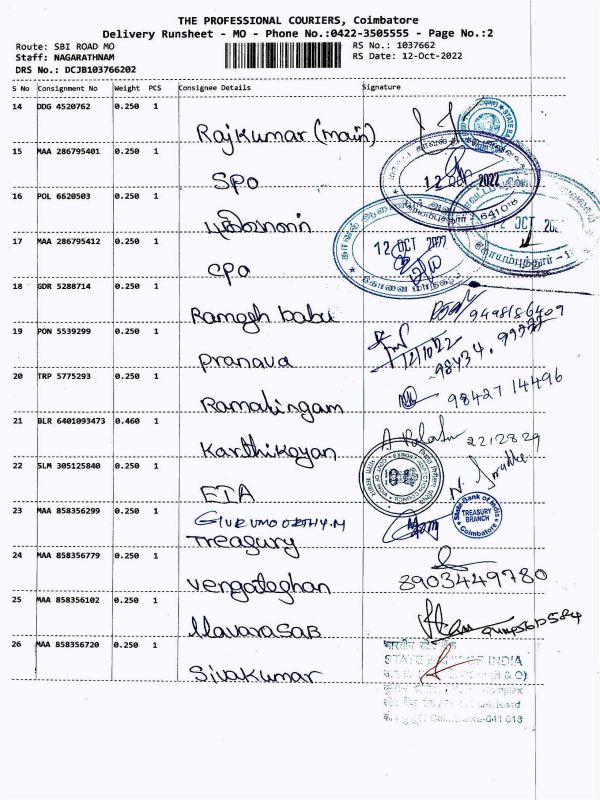 THE PROFESSIONAL COURIERS, Coimbatore
Delivery Runsheet - MO - Phone No.:0422-3505555 - Page No.:2
Route: SBI ROAD MO
RS No.: 1037662
Staff: NAGARATHNAM
RS Date: 12-Oct-2022
DRS No.: DCJB103766202
S No Consignment No Weight PCS Consignee Details Signature
14 DDG 4520762 0.250 1
Rajkumar (main)
15 MAA 286795401 0.250 1
SPO
12 OCT 2022
641018
16 POL 6620503 0.250 1
12 OCT
17 MAA 286795412 0.250 1
CPO
12 OCT 2022
18 GDR 5288714 0.250 1
Ramesh babu
9498186409
19 PON 5539299 0.250 1
Pranava
12/10/22
98434.
20 TRP 5775293 0.250 1
Ramalingam
98427 14496
21 BLR 6401093473 0.460 1
Karthikeyan
2212829
22 SLM 305125840 0.250 1
EIA
23 MAA 858356299 0.250 1
GURUMOORTHY.M
Treasury
State Bank of India
TREASURY
BRANCH
Coimbatore
24 MAA 858356779 0.250 1
Vengateshan
8903449780
25 MAA 858356102 0.250 1
26 MAA 858356720 0.250 1
Sivakumar
भारतीय स्टेट बैंक
STATE BANK OF INDIA
(B & O)
Complex
Road
Coimbatore-641 018